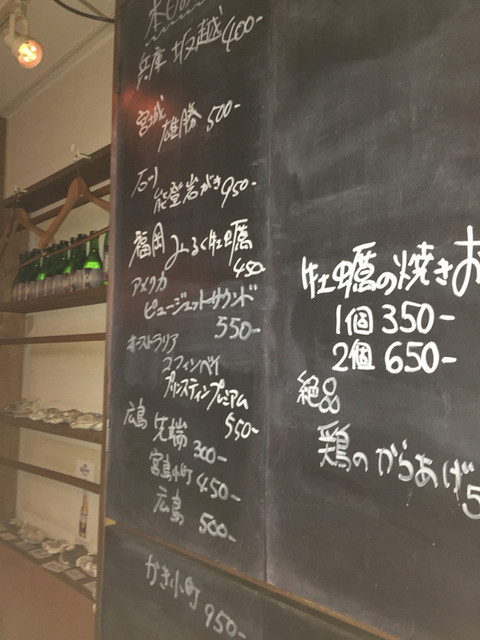 本日の
兵庫 坂越 400-
宮城
雄勝 500-
石川
能登岩がき 950-
福岡 みるく牡蠣
450
アメリカ
ピュージェットサウンド
550-
オーストラリア
コフィンベイ
プリスティンプレミアム
550-
広島 先端 300-
宮島小町 450-
広島 500-
かき小町
950-
牡蠣の焼きお
1個 350-
2個 650-
絶品
鶏のからあげ
5